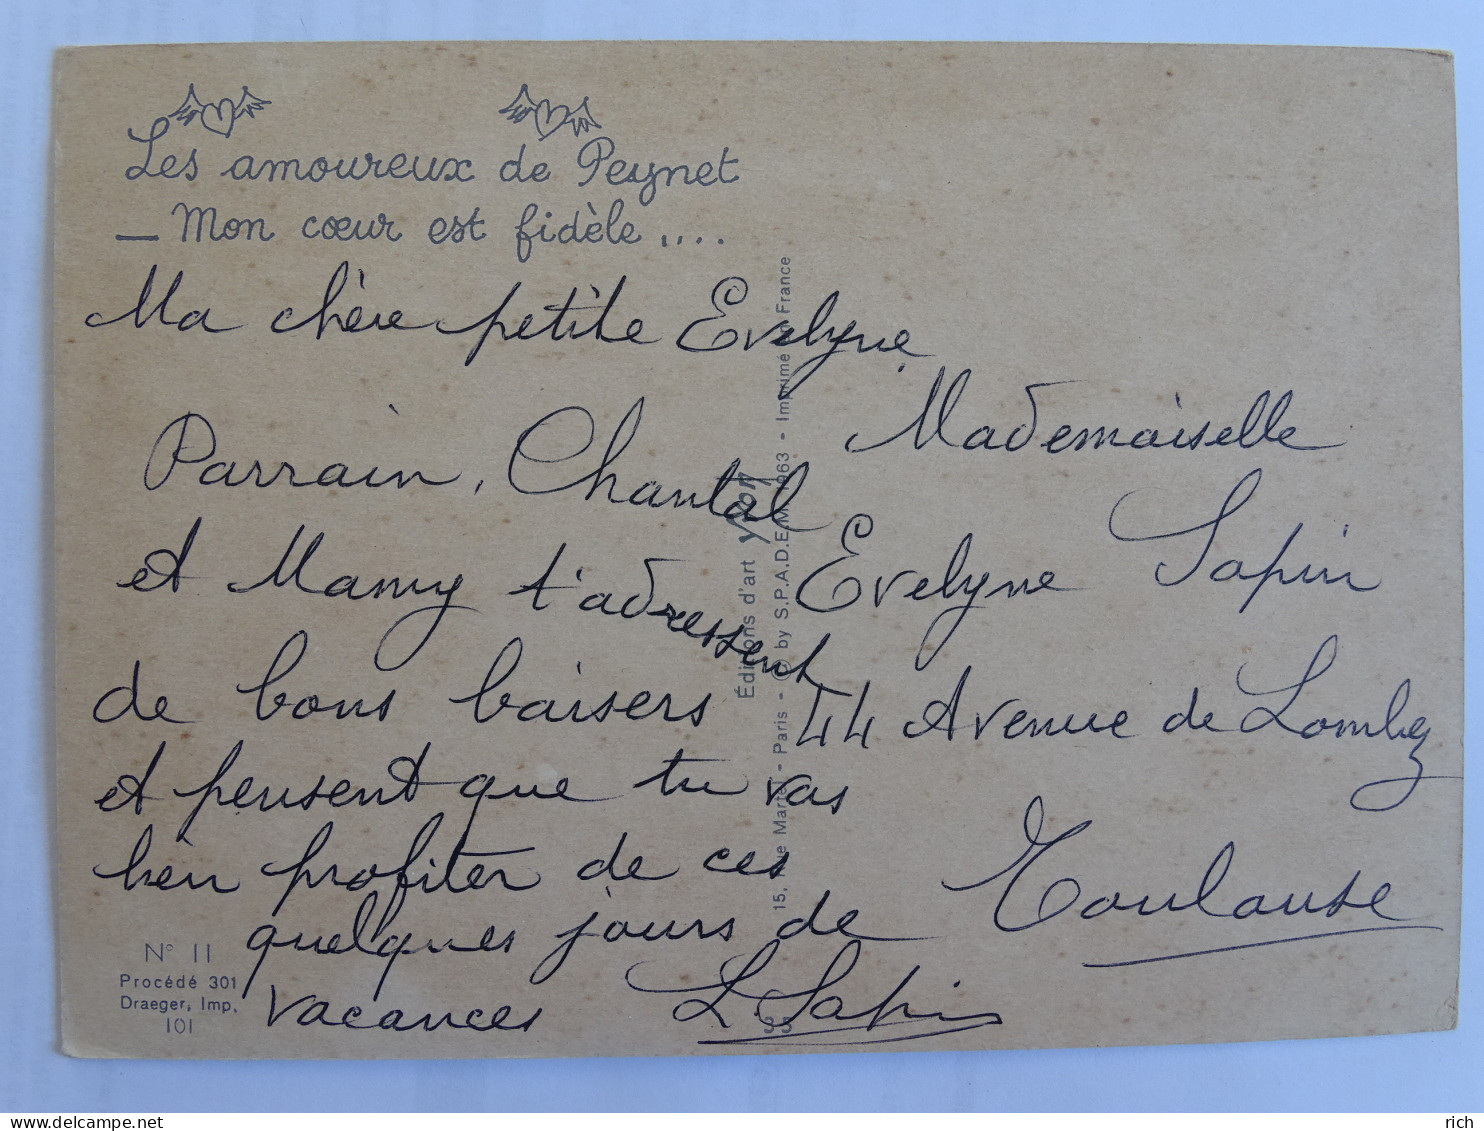 Les amoureux de Peynet
— Mon cœur est fidèle....
Ma chère petite Evelyne
Parrain, Chantal
et Mamy t'adressent
de bons baisers
et pensent que tu vas
bien profiter de ces
quelques jours de
vacances
L Sapin
Mademoiselle
Evelyne Sapin
44 Avenue de Lombez
Toulouse
Éditions d'art yvon
15, rue Martel - Paris - © by S.P.A.D.E.M. 1963 - Imprimé en France
N° 11
Procédé 301
Draeger, Imp.
101
rich